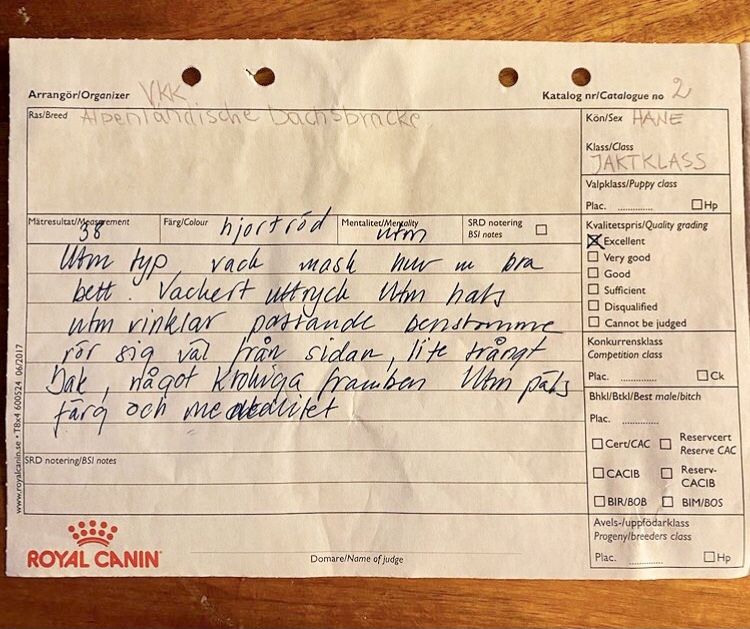 Arrangör/Organizer VKK
Katalog nr/Catalogue no 2
Ras/Breed Alpenländische Dachsbracke
Kön/Sex HANE
Klass/Class
JAKTKLASS
Valpklass/Puppy class
Plac. .......... Hp
Mätresultat/Measurement 38
Färg/Colour hjortröd
Mentalitet/Mentality utm
SRD notering
BSI notes
Kvalitetspris/Quality grading
Excellent
Very good
Good
Sufficient
Disqualified
Cannot be judged
Utm typ vack mask huv m bra
bett. Vackert uttryck Utm hals
utm vinklar passande benstomme
rör sig väl från sidan, lite trångt
bak, något krokiga framben Utm päls
färg och mentalitet
Konkurrensklass
Competition class
Plac. .......... Ck
Bhkl/Btkl/Best male/bitch
Plac. ..........
Cert/CAC
Reservcert
Reserve CAC
CACIB
Reserv-
CACIB
BIR/BOB
BIM/BOS
SRD notering/BSI notes
Avels-/uppfödarklass
Progeny/breeders class
Plac. .......... Hp
www.royalcanin.se • TBx4 600524 06/2017
ROYAL CANIN
Domare/Name of judge